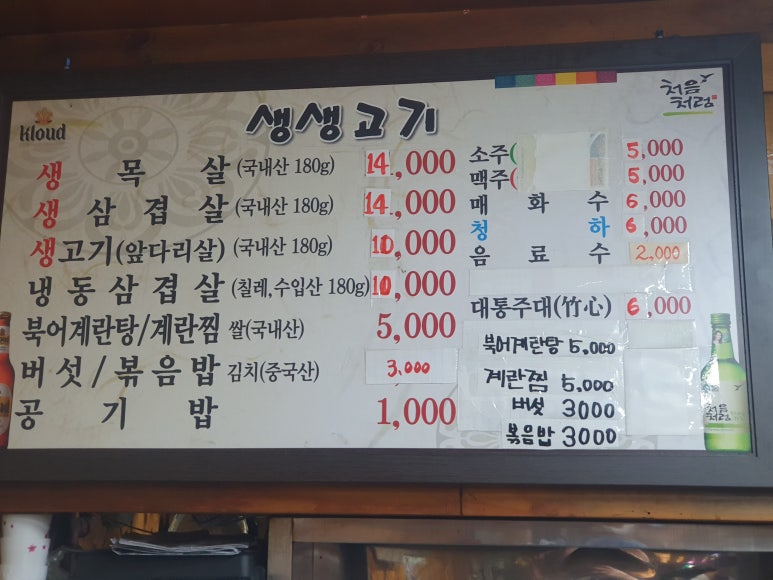 Kloud
생생고기
처음
처럼
생목살 (국내산 180g) 14,000
생삼겹살 (국내산 180g) 14,000
생고기(앞다리살) (국내산 180g) 10,000
냉동삼겹살 (칠레,수입산 180g) 10,000
북어계란탕/계란찜 쌀(국내산) 5,000
버섯/볶음밥 김치(중국산) 3,000
공기밥 1,000
소주( 5,000
맥주( 5,000
매화수 6,000
청하 6,000
음료수 2,000
대통주대(竹心) 6,000
북어계란탕 5,000
계란찜 5,000
버섯 3000
볶음밥 3000
처음
처럼